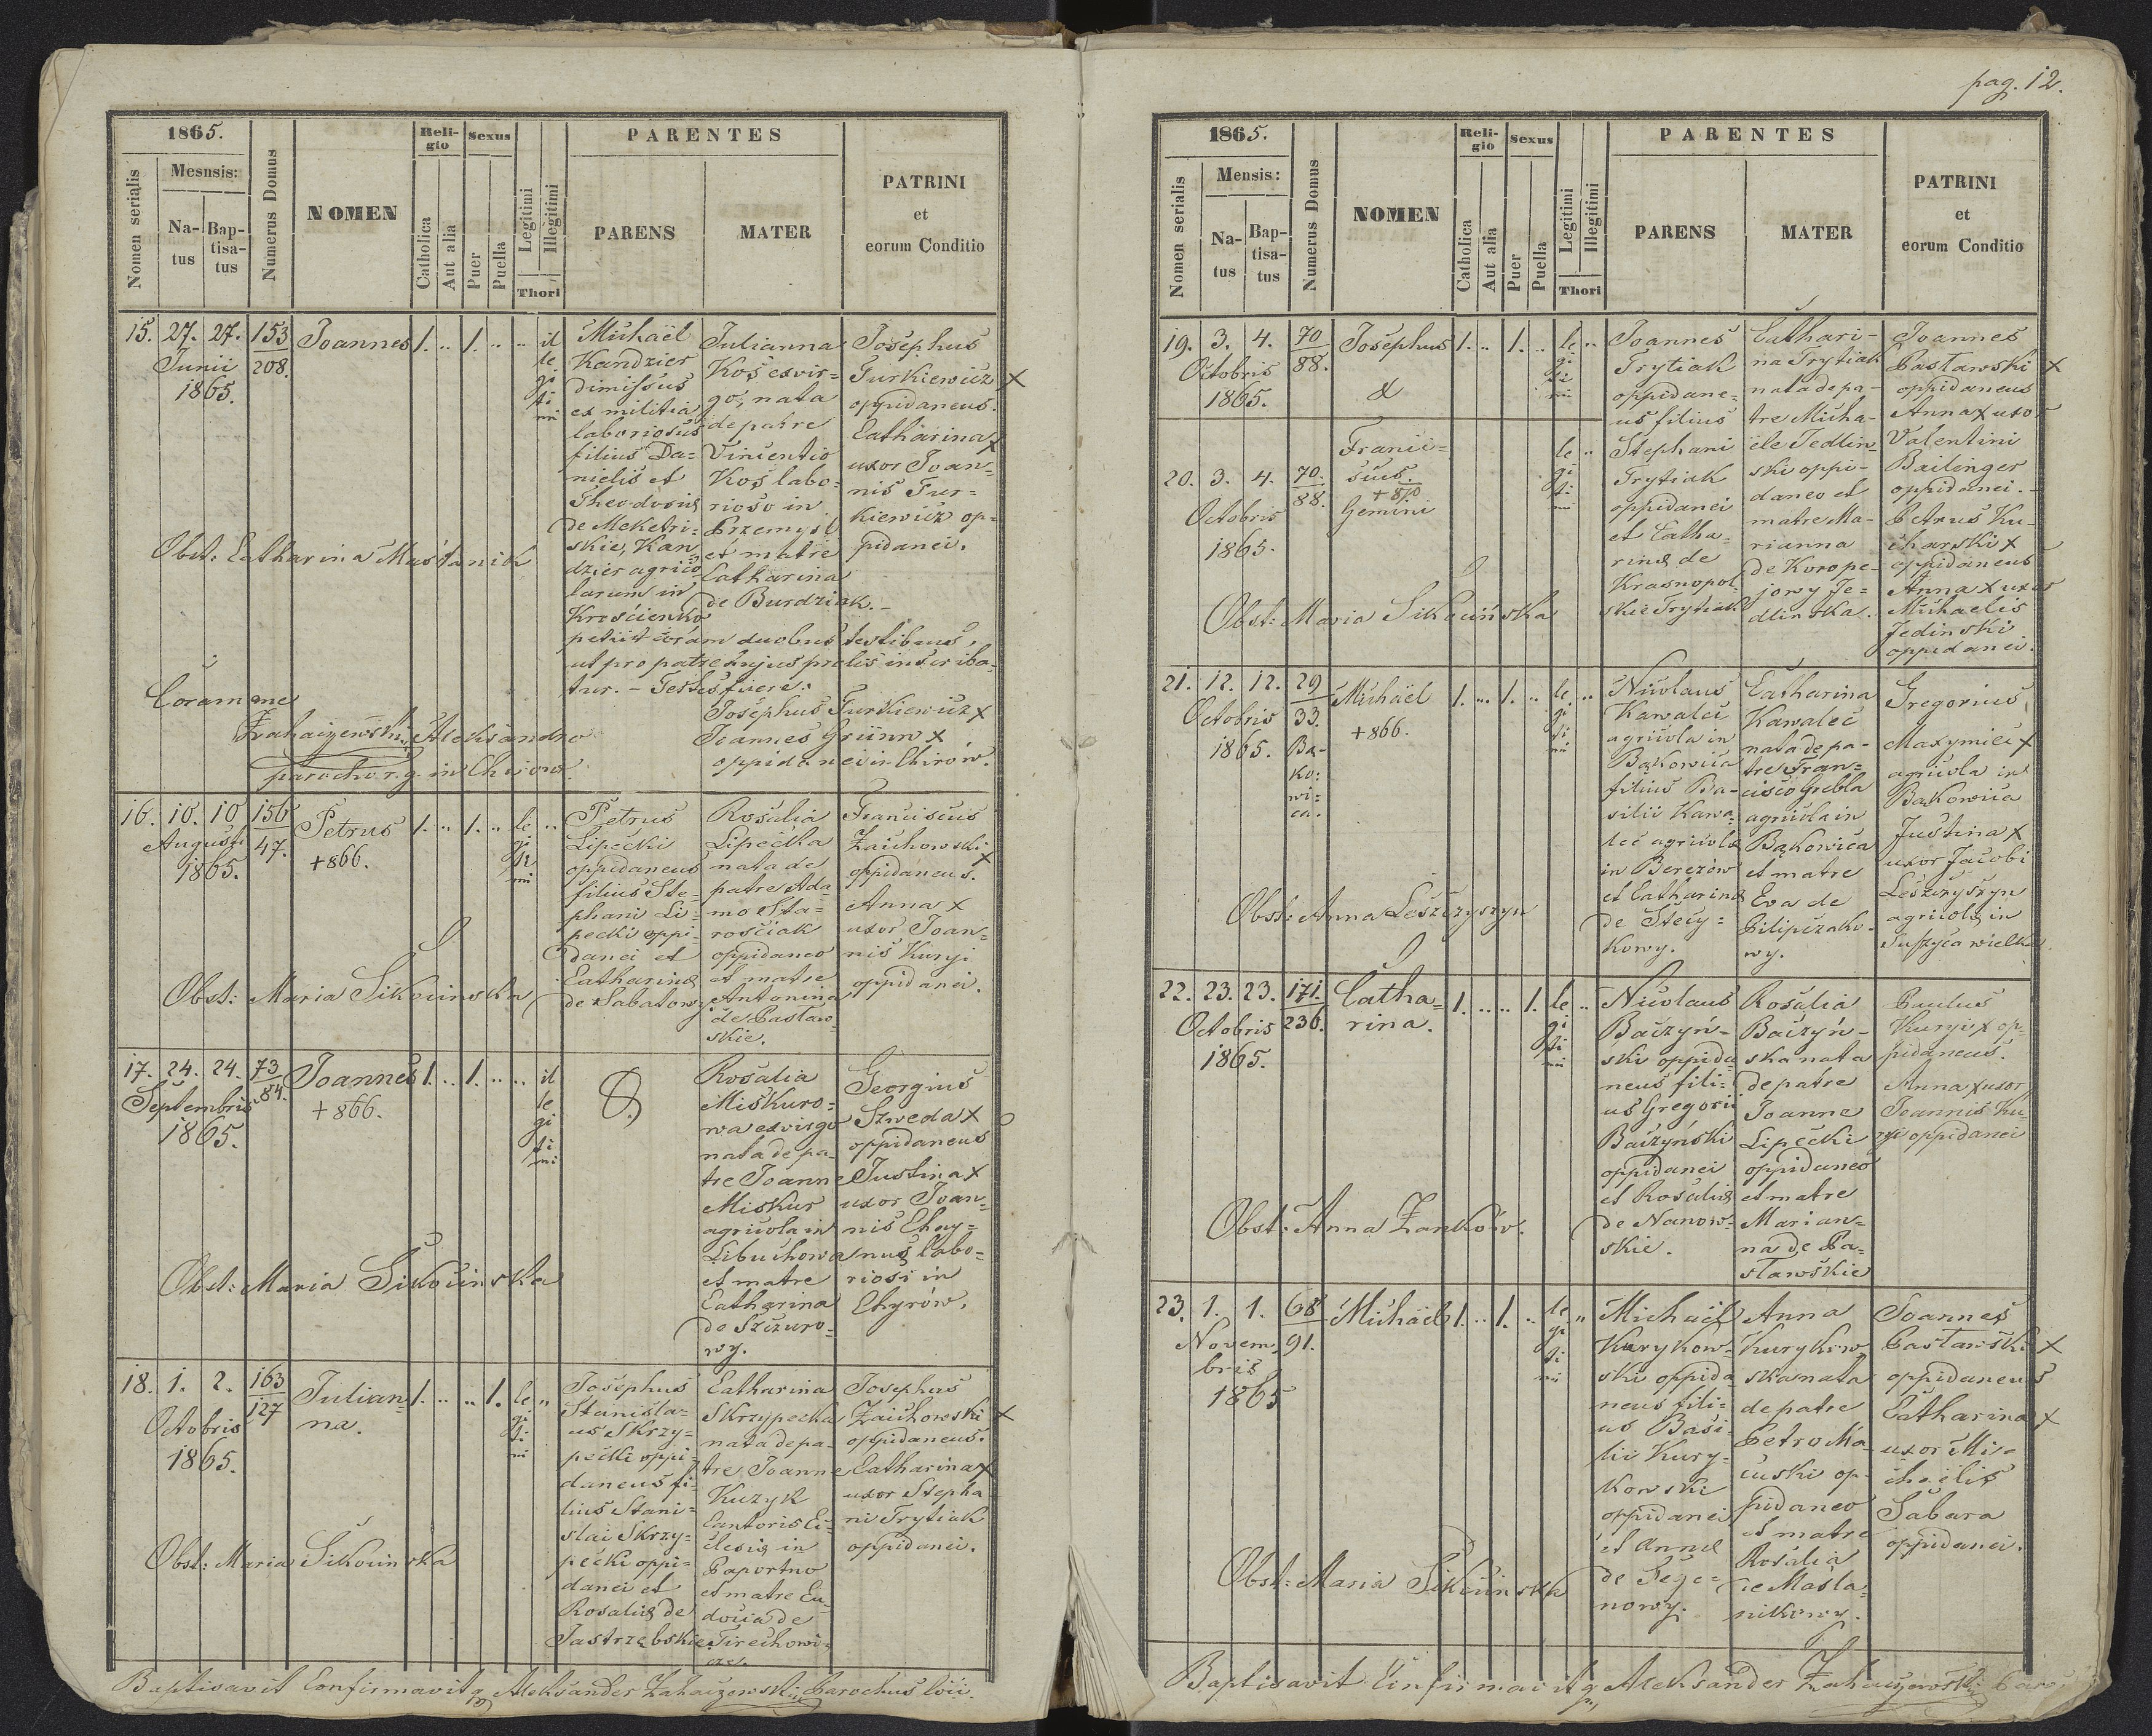 pag. 12.
1865.
Mesnsis:
Nomen serialis
Na-
tus
Bap-
tisa-
tus
Numerus Domus
NOMEN
Reli-
gio
Catholica
Aut alia
Sexus
Puer
Puella
Legitimi
Illegitimi
Thori
PARENTES
PARENS
MATER
PATRINI
et
eorum Conditio
15. 27. 27. 153
Junii 208.
1865.
Joannes 1. .. 1. .. ..
il
le
gi
ti
mi
Michaël
Kandzier
dimissus
ex militia
laboriosus
filius Da=
nielis et
Theodosiæ
de Meketri=
skie, Kan=
dzier agrico
larum in
Krościenko
Julianna
Koś exvir=
go, nata
de patre
Vincentio
Koś labo=
rioso in
Przemysl
et matre
Catharina
de Burdziak.-
petiit coram duobus testibus,
ut pro patre hujus prolis inscriba-
tur. - Testes fuere:
Josephus Turkiewicz x
Joannes Grünn x
oppidanei in Chirów.
Josephus
Turkiewicz x
oppidaneus.
Catharina x
uxor Joan=
nis Tur=
kiewicz op=
pidanei.
Obst: Catharina Maśtanik
Coram me
Aleksandro
parocho r. g. in Chirow.
16. 10. 10 156
Augusti 47.
1865.
Petrus 1. .. 1. .. ..
+866.
le
gi
ti
mi
Petrus
Lipecki
oppidaneus
filius Ste=
phani Li=
pecki oppi=
danei et
Catharinæ
de Sabatowy
Rosalia
Lipecka
nata de
patre Ada
mo Sta=
rościak
oppidaneo
et matre
Antonina
de Pasław-
skie.
Franciscus
Zaichowski
x
oppidaneus.
Anna x
uxor Joan=
nis Kuryj
oppidanei.
Obst: Maria Sikocinska
17. 24. 24. 73
Septembris 84.
1865.
Joannes 1. .. 1. .. ..
+866.
il
le
gi
ti
mi
Rosalia
Miskuro=
wa exvirgo
nata de pa-
tre Joanne
Miskur
agricola in
Libuchowa
et matre
Catharina
de Szczuro-
wy.
Georgius
Szweda x
oppidaneus
Justina x
uxor Joan=
nis Chay=
nus labo=
riosi in
Chyrów.
Obst: Maria Sikocinska
18. 1. 2. 163
Octobris 127
1865.
Julian= 1. .. .. 1. ..
na.
le
gi
ti
mi
Josephus
Stanisla=
us Skrzy=
pecki oppi=
daneus fi=
lius Stani=
slai Skrzy=
pecki oppi=
danei et
Rosaliæ de
Jastrzębskie
Catharina
Skrzypecka
nata de pa-
tre Joanne
Kuzyk
Cantoris Ec=
clesiæ in
Paportno
et matre Eu-
docia de
Tirechowi=
Josephus
Zaichowski x
oppidaneus.
Catharina x
uxor Stepha
ni Trytiak
oppidanei.
Obst: Maria Sikocinska
Baptisavit Confirmavitq Aleksander Parochus loci.
1865.
Mensis:
Nomen serialis
Na-
tus
Bap-
tisa-
tus
Numerus Domus
NOMEN
Reli-
gio
Catholica
Aut alia
Sexus
Puer
Puella
Legitimi
Illegitimi
Thori
PARENTES
PARENS
MATER
PATRINI
et
eorum Conditio
19. 3. 4. 70
Octobris 88.
1865.
Josephus 1. .. 1. .. ..
&
le
gi
ti
mi
20. 3. 4. 70.
Octobris 88.
1865.
Francis=
cus.
+870
Gemini
le
gi
ti
mi
Joannes
Trytiak
oppidane=
us filius
Stephani
Trytiak
oppidanei
et Catha=
rinæ de
Krasnopol
skie Trytiak
Cathari-
na Trytiak
nata de pa-
tre Micha-
ele Jedlin
ski oppi-
daneo et
matre Ma-
rianna
de Korope-
jowy Je=
dlinska.
Joannes
Pasławski x
oppidaneus
Anna x uxor
Valentini
Bailinger
oppidanei.-
Petrus Ku-
charski x
oppidaneus
Anna x uxor
Michaelis
Jedinski
oppidanei.
Obst: Maria Sikocińska
21. 12. 12. 29
Octobris 33.
1865. Ba-
ko:
wi=
ca.
Michäel 1. .. 1. .. ..
+866.
le
gi
ti
mi
Nicolaus
Kawalec
agricola in
Bąkowica
filius Ba-
silii Kawa
lec agricolæ
in Berezów
et Catharinæ
de Stecy=
kowy.
Catharina
Kawalec
nata de pa-
tre Fran=
cisco Grebla
agricola in
Bąkowica
et matre
Eva de
Pilipczako-
wy.
Gregorius
Maxymiec x
agricola in
Bąkowica
Justina x
uxor Jacobi
Leszczyszyn
agricolæ in
Suszyca wielka.
Obst: Anna Leszczyszyn
22. 23. 23. 171.
Octobris 236.
1865.
Catha= 1. .. .. 1. ..
rina.
le
gi
ti
mi
Nicolaus
Baczyń-
ski oppida
neus fili=
us Gregorii
Baczyński
oppidanei
et Rosaliæ
de Nanow-
skie.
Rosalia
Baczyń-
ska nata
de patre
Joanne
Lipecki
oppidaneo
et matre
Marian=
na de Pa-
sławskie
Paulus
Kuryj x op-
pidaneus.
Anna x uxor
Joannis Ku-
ryj oppidanei
Obst: Anna Zanków.
23. 1. 1. 68
Novem- 91.
bris
1865
Michäel 1. .. 1. .. ..
le
gi
ti
mi
Michaël
Kurykow-
ski oppida
neus fili=
us Basi-
lii Kury-
kowski
oppidanei
et Annæ
de Fege=
nowy.
Anna
Kurykow
ska nata
de patre
Petro Ma-
cuski op-
pidaneo
et matre
Rosalia
de Maśla-
nikowy.
Joannes
Pasławski x
oppidaneus
Catharina x
uxor Mi=
chaëlis
Sabara
oppidanei.
Obst: Maria Sikocinska
Baptisavit Confirmavitq Aleksander